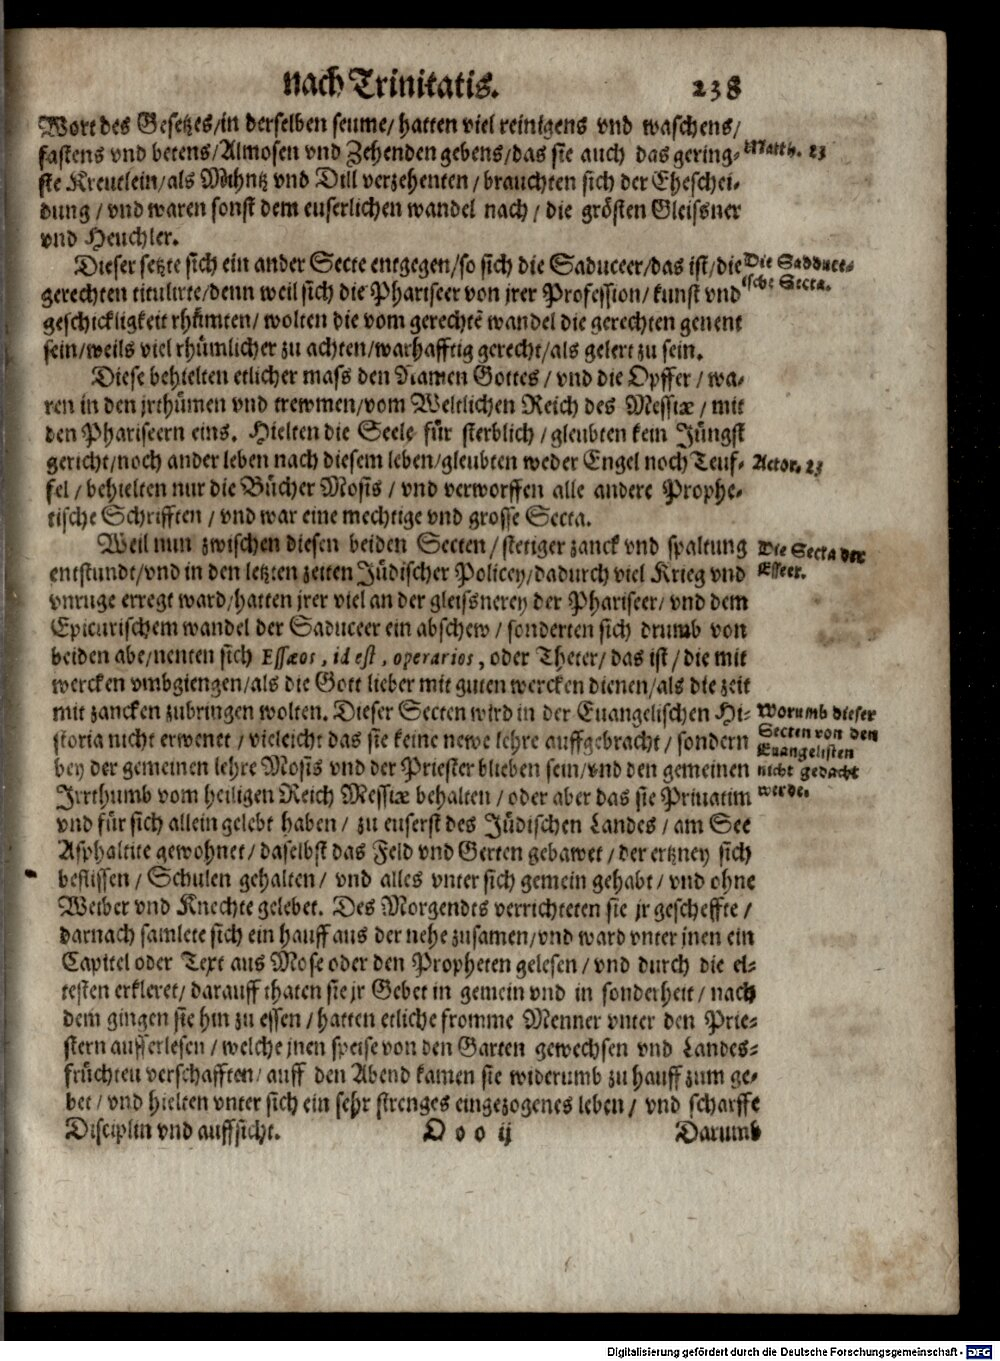 nach Trinitatis. 238
Wort des Gesetzes/in derselben seume/ hatten viel reinigens vnd waschens/
fastens vnd betens/Almosen vnd Zehenden gebens/das sie auch das gering-
Matth. 23
ste Kreutlein/als Mühntz vnd Dill verzehenten/ brauchten sich der Eheschei-
dung / vnd waren sonst dem euserlichen wandel nach / die grösten Gleissner
vnd Heuchler.
Dieser setzte sich ein ander Secte entgegen/so sich die Saduceer/das ist/die
Die Sadducee-
gerechten titulirte/denn weil sich die Phariseer von jrer Profession/ kunst vnd
ische Secta.
geschickligkeit rhümten/ wolten die vom gerechtē wandel die gerechten genent
sein/weils viel rhümlicher zu achten/warhafftig gerecht/als gelert zu sein.
Diese behielten etlicher mass den Namen Gottes / vnd die Opffer / wa-
ren in den jrthümen vnd trewmen/vom Weltlichen Reich des Messiæ / mit
den Phariseern eins. Hielten die Seele für sterblich / gleubten kein Jüngst
gericht/noch ander leben nach diesem leben/gleubten weder Engel noch Teuf-
Actor. 23
fel / behielten nur die Bücher Mosis / vnd verworffen alle andere Prophe-
tische Schrifften / vnd war eine mechtige vnd grosse Secta.
Weil nun zwischen diesen beiden Secten / stetiger zanck vnd spaltung
Die Secta der
entstundt/vnd in den letzten zeiten Jüdischer Policey/dadurch viel Krieg vnd
Esseer.
vnruge erregt ward/hatten jrer viel an der gleissnerey der Phariseer/ vnd dem
Epicurischem wandel der Saduceer ein abschew / sonderten sich drumb von
beiden abe/nenten sich Essæos, id est, operarios, oder Theter/ das ist / die mit
wercken vmbgiengen/als die Gott lieber mit guten wercken dienen/als die zeit
mit zancken zubringen wolten. Dieser Secten wird in der Euangelischen Hi-
Worumb dieser
storia nicht erwenet / vieleicht das sie keine newe lehre auffgebracht / sondern
Secten von den
Euangelisten
bey der gemeinen lehre Mosis vnd der Priester blieben sein/vnd den gemeinen
nicht gedacht
Irrthumb vom heiligen Reich Messiæ behalten / oder aber das sie Priuatim
werde.
vnd für sich allein gelebt haben / zu euserst des Jüdischen Landes / am See
Asphaltite gewohnet/ daselbst das Feld vnd Gerten gebawet / der ertzney sich
beflissen / Schulen gehalten / vnd alles vnter sich gemein gehabt / vnd ohne
Weiber vnd Knechte gelebet. Des Morgendts verrichteten sie jr gescheffte /
darnach samlete sich ein hauff aus der nehe zusamen/vnd ward vnter jnen ein
Capitel oder Text aus Mose oder den Propheten gelesen / vnd durch die el-
testen erkleret/ darauff thaten sie jr Gebet in gemein vnd in sonderheit / nach
dem gingen sie hin zu essen / hatten etliche fromme Menner vnter den Prie-
stern ausserlesen / welche jnen speise von den Garten gewechsen vnd Landes-
früchten verschafften/ auff den Abend kamen sie widerumb zu hauff zum ge-
bet / vnd hielten vnter sich ein sehr strenges eingezogenes leben / vnd scharffe
Disciplin vnd auffsicht. O o o ij Darumb
Digitalisierung gefördert durch die Deutsche Forschungsgemeinschaft - DFG